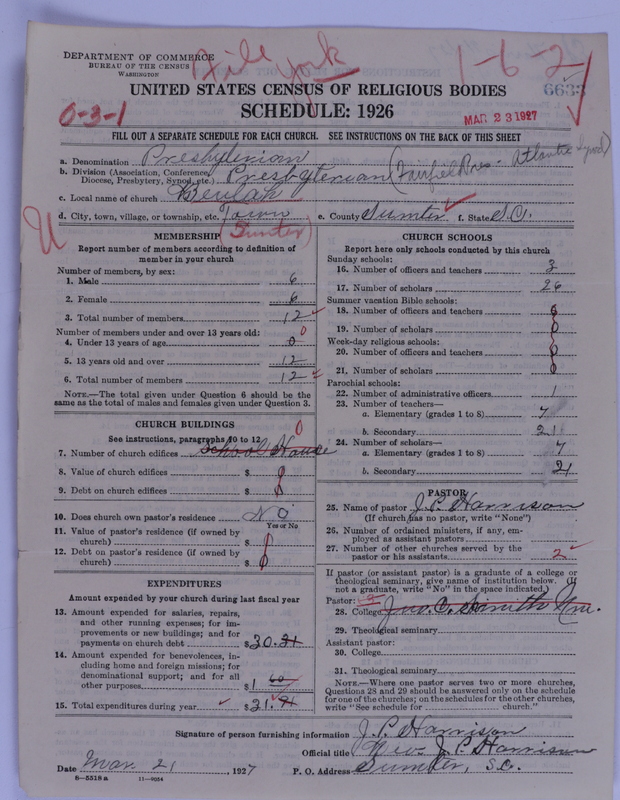 DEPARTMENT OF COMMERCE
BUREAU OF THE CENSUS
WASHINGTON
1-6-2
663
UNITED STATES CENSUS OF RELIGIOUS BODIES
SCHEDULE: 1926
0-3-1
MAR 23 1927
FILL OUT A SEPARATE SCHEDULE FOR EACH CHURCH. SEE INSTRUCTIONS ON THE BACK OF THIS SHEET
a. Denomination Presbyterian
b. Division (Association, Conference, Diocese, Presbytery, Synod, etc.) Presbyterian (Fairfield Pres- Atlantic Synod)
c. Local name of church Beulah
d. City, town, village, or township, etc. Town e. County Sumter f. State S.C.
Sumter
MEMBERSHIP
Report number of members according to definition of member in your church
Number of members, by sex:
1. Male 6
2. Female 6
3. Total number of members 12
Number of members under and over 13 years old:
4. Under 13 years of age 0
5. 13 years old and over 12
6. Total number of members 12
NOTE.—The total given under Question 6 should be the same as the total of males and females given under Question 3.
CHURCH BUILDINGS
See instructions, paragraphs 10 to 12
7. Number of church edifices School House 0
8. Value of church edifices $ 0
9. Debt on church edifices $ 0
10. Does church own pastor's residence NO
Yes or No
11. Value of pastor's residence (if owned by church) $ 0
12. Debt on pastor's residence (if owned by church) $ 0
EXPENDITURES
Amount expended by your church during last fiscal year
13. Amount expended for salaries, repairs, and other running expenses; for improvements or new buildings; and for payments on church debt $ 30.31
14. Amount expended for benevolences, including home and foreign missions; for denominational support; and for all other purposes $ 1 60
15. Total expenditures during year $ 31.91
CHURCH SCHOOLS
Report here only schools conducted by this church
Sunday schools:
16. Number of officers and teachers 3
17. Number of scholars 26
Summer vacation Bible schools:
18. Number of officers and teachers 0
19. Number of scholars 0
Week-day religious schools:
20. Number of officers and teachers 0
21. Number of scholars 0
Parochial schools:
22. Number of administrative officers 1
23. Number of teachers—
a. Elementary (grades 1 to 8)
b. Secondary 21
24. Number of scholars—
a. Elementary (grades 1 to 8)
b. Secondary 21
PASTOR
25. Name of pastor J.P. Harrison
(If church has no pastor, write "None")
26. Number of ordained ministers, if any, employed as assistant pastors
27. Number of other churches served by the pastor or his assistants 2
If pastor (or assistant pastor) is a graduate of a college or theological seminary, give name of institution below. (If not a graduate, write "No" in the space indicated.)
Pastor:
28. College Jno. C. Smith Uni.
29. Theological seminary
Assistant pastor:
30. College
31. Theological seminary
NOTE.—Where one pastor serves two or more churches, Questions 28 and 29 should be answered only on the schedule for one of the churches; on the schedules for the other churches, write "See schedule for church."
Signature of person furnishing information J.P. Harrison
Official title Rev. J.P. Harrison
Date Mar. 21, 1927 P. O. Address Sumter, S.C.
8—5518 a 11—9054